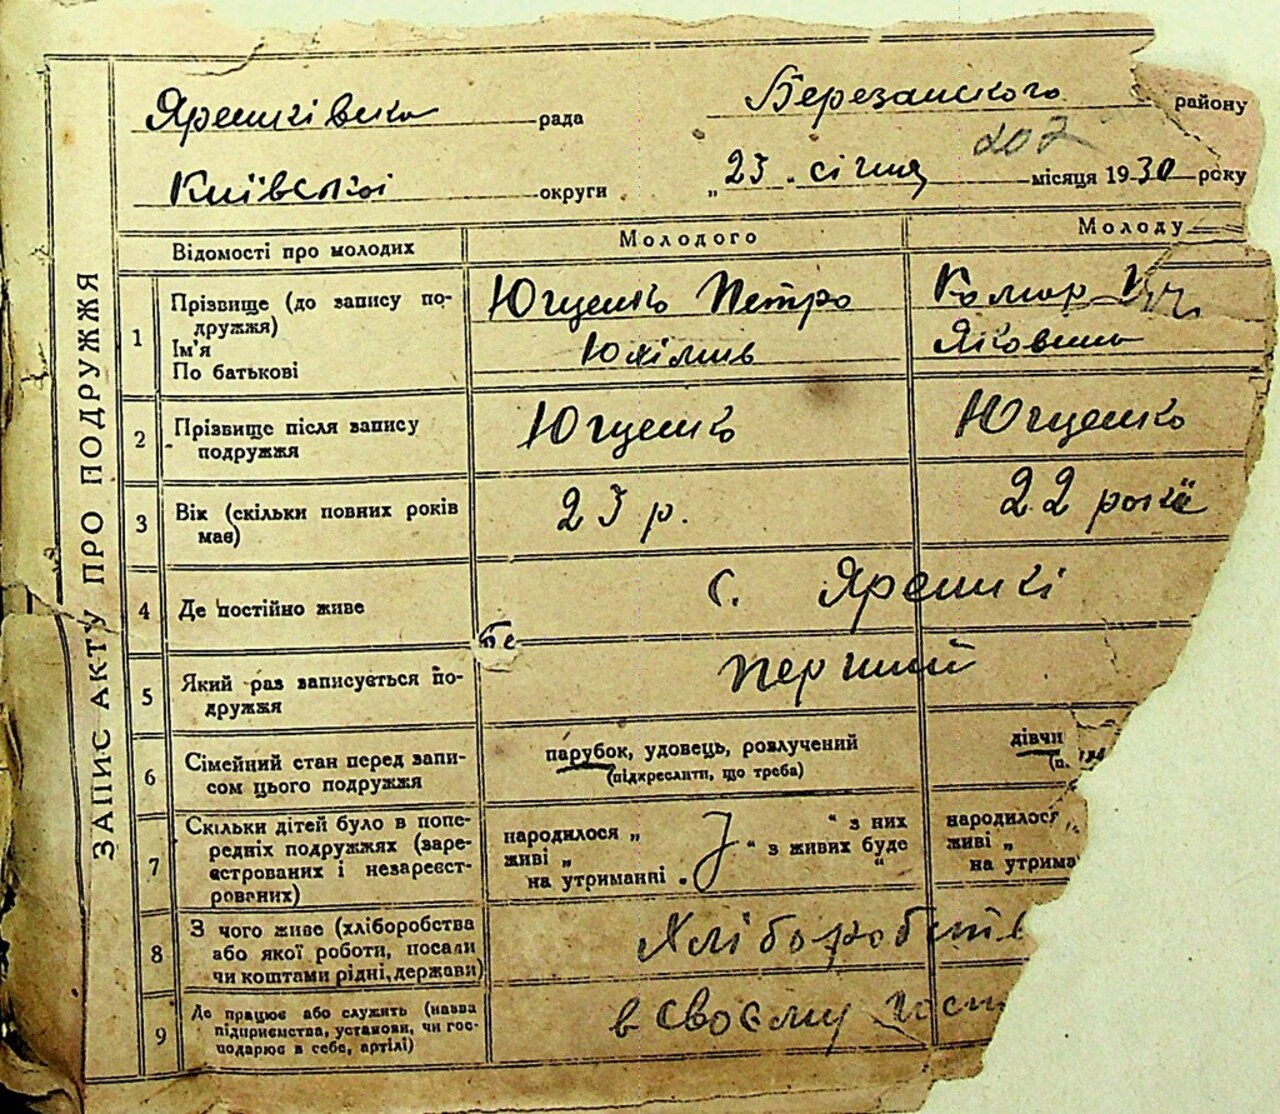 Ярешківська рада Березанського району
202
Київської округи „23„ січня місяця 1930 року
ЗАПИС АКТУ ПРО ПОДРУЖЖЯ
Відомості про молодих Молодого Молоду
1 Прізвище (до запису по-
дружжя)
Ім'я
По батькові
Ющенко Петро
Юхимів
Комар
Яковина
2 Прізвище після запису
подружжя
Ющенко Ющенко
3 Вік (скільки повних років
має)
23 р. 22 роки
4 Де постійно живе с. Ярешкі
5 Який раз записується по-
дружжя
перший
6 Сімейний стан перед запи-
сом цього подружжя
парубок, удовець, розлучений
(підкреслити, що треба)
дівчи
(п.
7 Скільки дітей було в попе-
редніх подружжях (заре-
єстрованих і незареєст-
рованих)
народилося „ “ з них
живі „ “ з живих буде
на утриманні „ “
народилося „
живі „
на утрима
8 З чого живе (хліборобства
або якої роботи, посади
чи коштами рідні, держави)
Хліборобств
9 Де працює або служить (назва
підприємства, установи, чи гос-
подарює в себе, артілі)
в своєму госп